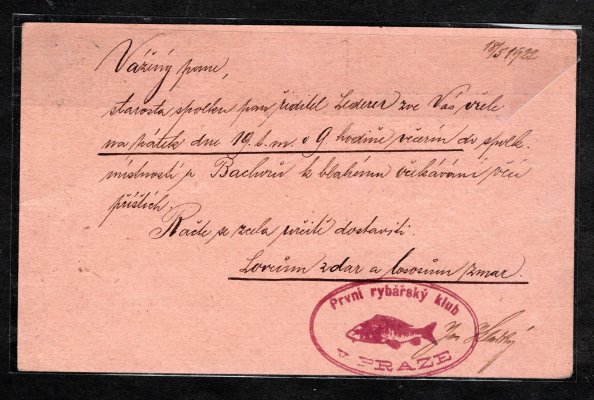 18/5 1922
Vážený pane,
starosta spolku pan ředitel Lederer zve Vás vřele
na pátek dne 19. t. m. o 9 hodině večerní do spolk.
místnosti p. Bachorů k blahému očekávání věcí
příštích.
Račte se zcela určitě dostaviti.
Lovcům zdar a lososům zmar.
První rybářský klub
v PRAZE